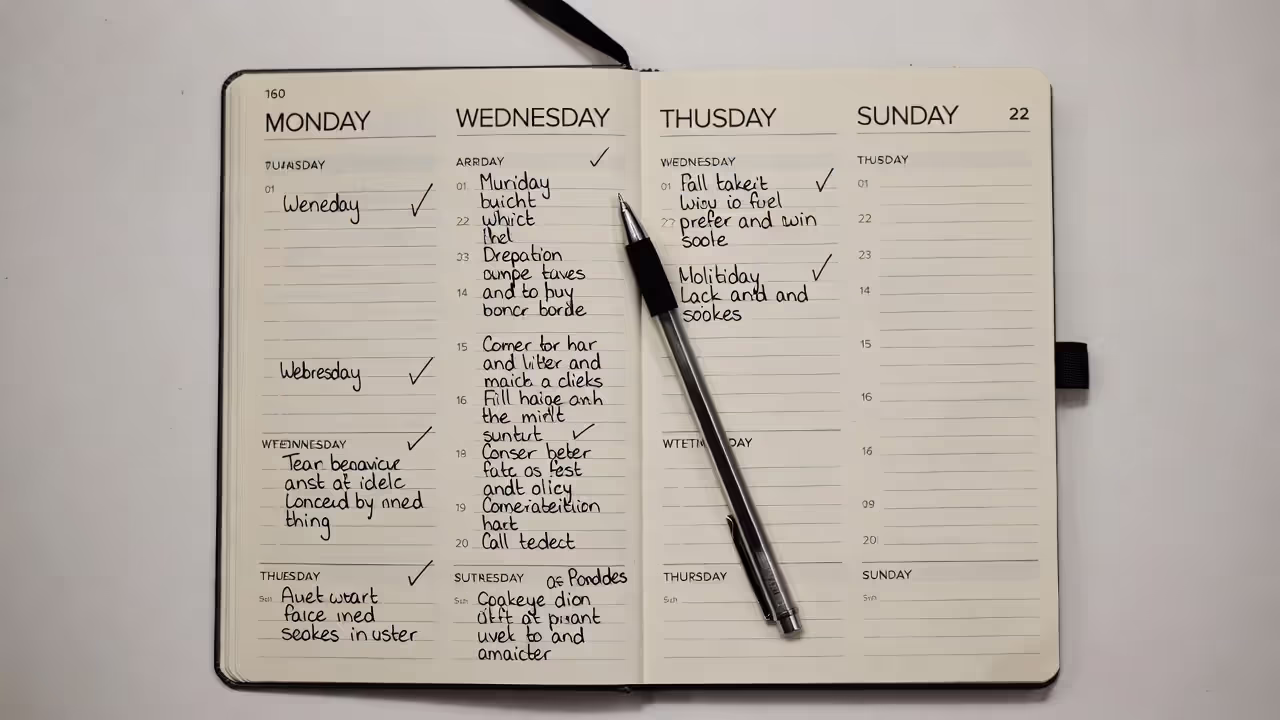 160
MONDAY
01
Weneday
Webresday
WFEDNNESDAY
Tear
anst at idelc
Lonced by nned
thing
THUESDAY
Auet wtart
faice ined
seokes in uster
WEDNESDAY
ARRDAY
01 Muriday
buicht
22 whict
lhel
03 Drepation
oumpe taves
14 and to buy
boncr borde
15 Comer for har
and litter and
maich a clieks
16 Fill haige anh
the mirlt
suntut
18 Conser beter
fatc os fest
andt olicy
19
hart
20 Call tedect
SUTRESDAY
Cpakeye dion
at
uvek to and
amaicter
THUSDAY
WEDNESDAY
01 Fall takeit
io fuel
prefer and win
soote
Molitiday
Lack and and
sookes
THURSDAY
SUNDAY 22
THUSDAY
01
22
23
14
15
16
16
09
20
SUNDAY